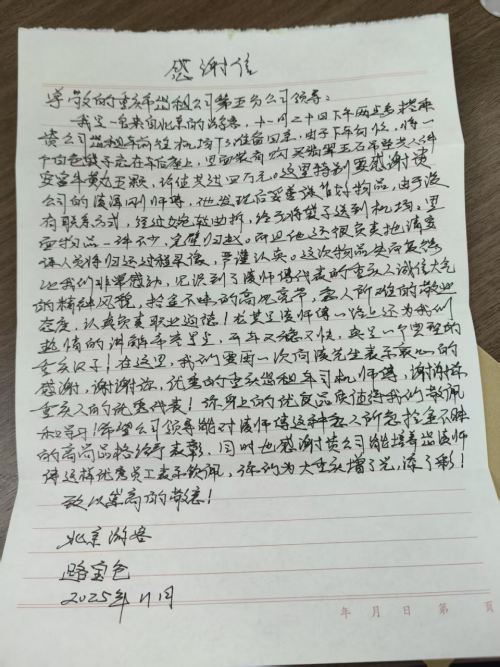 感谢信
尊敬的重庆市出租公司第五分公司领导:
我是一名来自北京的游客,十一月二十四日下午两点多搭乘
贵公司出租车前往机场T3准备回京,由于下车匆忙,将一
个白色袋子忘在车后座上,里面装有购买翡翠玉石吊坠六件
安宫牛黄丸五颗,价值共达四万元。这里特别要感谢贵
公司的凌泽网师傅,他发现后妥善保管好物品,由于没
有联系方式,经过好几经曲折,终于将袋子送到机场,里
面物品一件不少,完璧归赵。而且他还很负责地请
让我们非常感动,见识到了凌师傅代表的重庆人诚信大气
的精神风貌,拾金不昧的高尚品德,急人所难的敬业
态度,认真负责职业道德!尤其是凌师傅一路上还为我们
热情的讲解
重庆汉子!在这里,我们要再一次向凌先生表示衷心的
感谢,谢谢你,优秀的重庆出租车司机师傅,谢谢你
重庆人的优秀代表!你身上的优良品质值得我们敬佩
和学习!希望公司领导能对凌师傅这种急人所急拾金不昧
的高尚品格给予表彰,同时也感谢贵公司能培养出凌师
傅这样优秀员工表示钦佩,你们为大重庆增了光,添了彩!
致以崇高的敬意!
北京游客
路宝仓
2025年11月
年 月 日 第 页